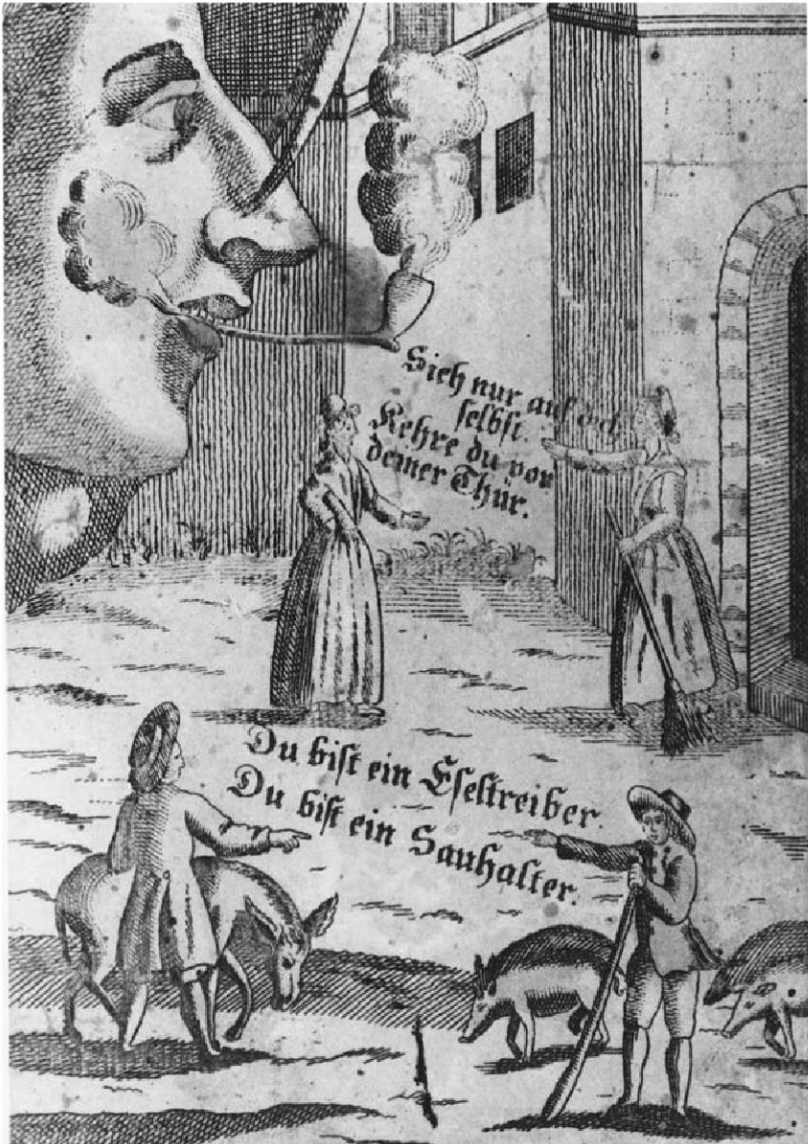 Sieh nur auf dich
selbst.
Kehre du vor
deiner Thür.
Du bist ein Eseltreiber.
Du bist ein Sauhalter.